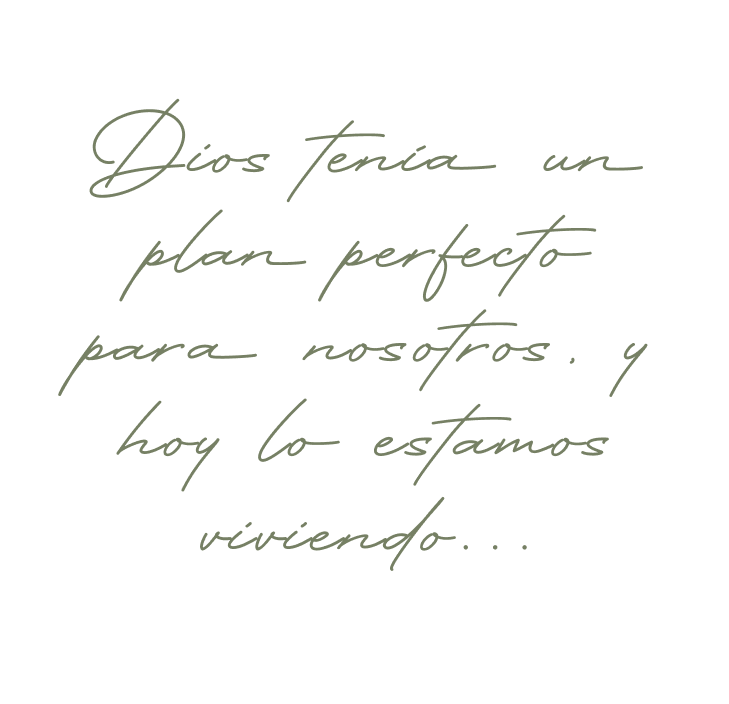 Dios tenía un
plan perfecto
para nosotros. y
hoy lo estamos
viviendo...